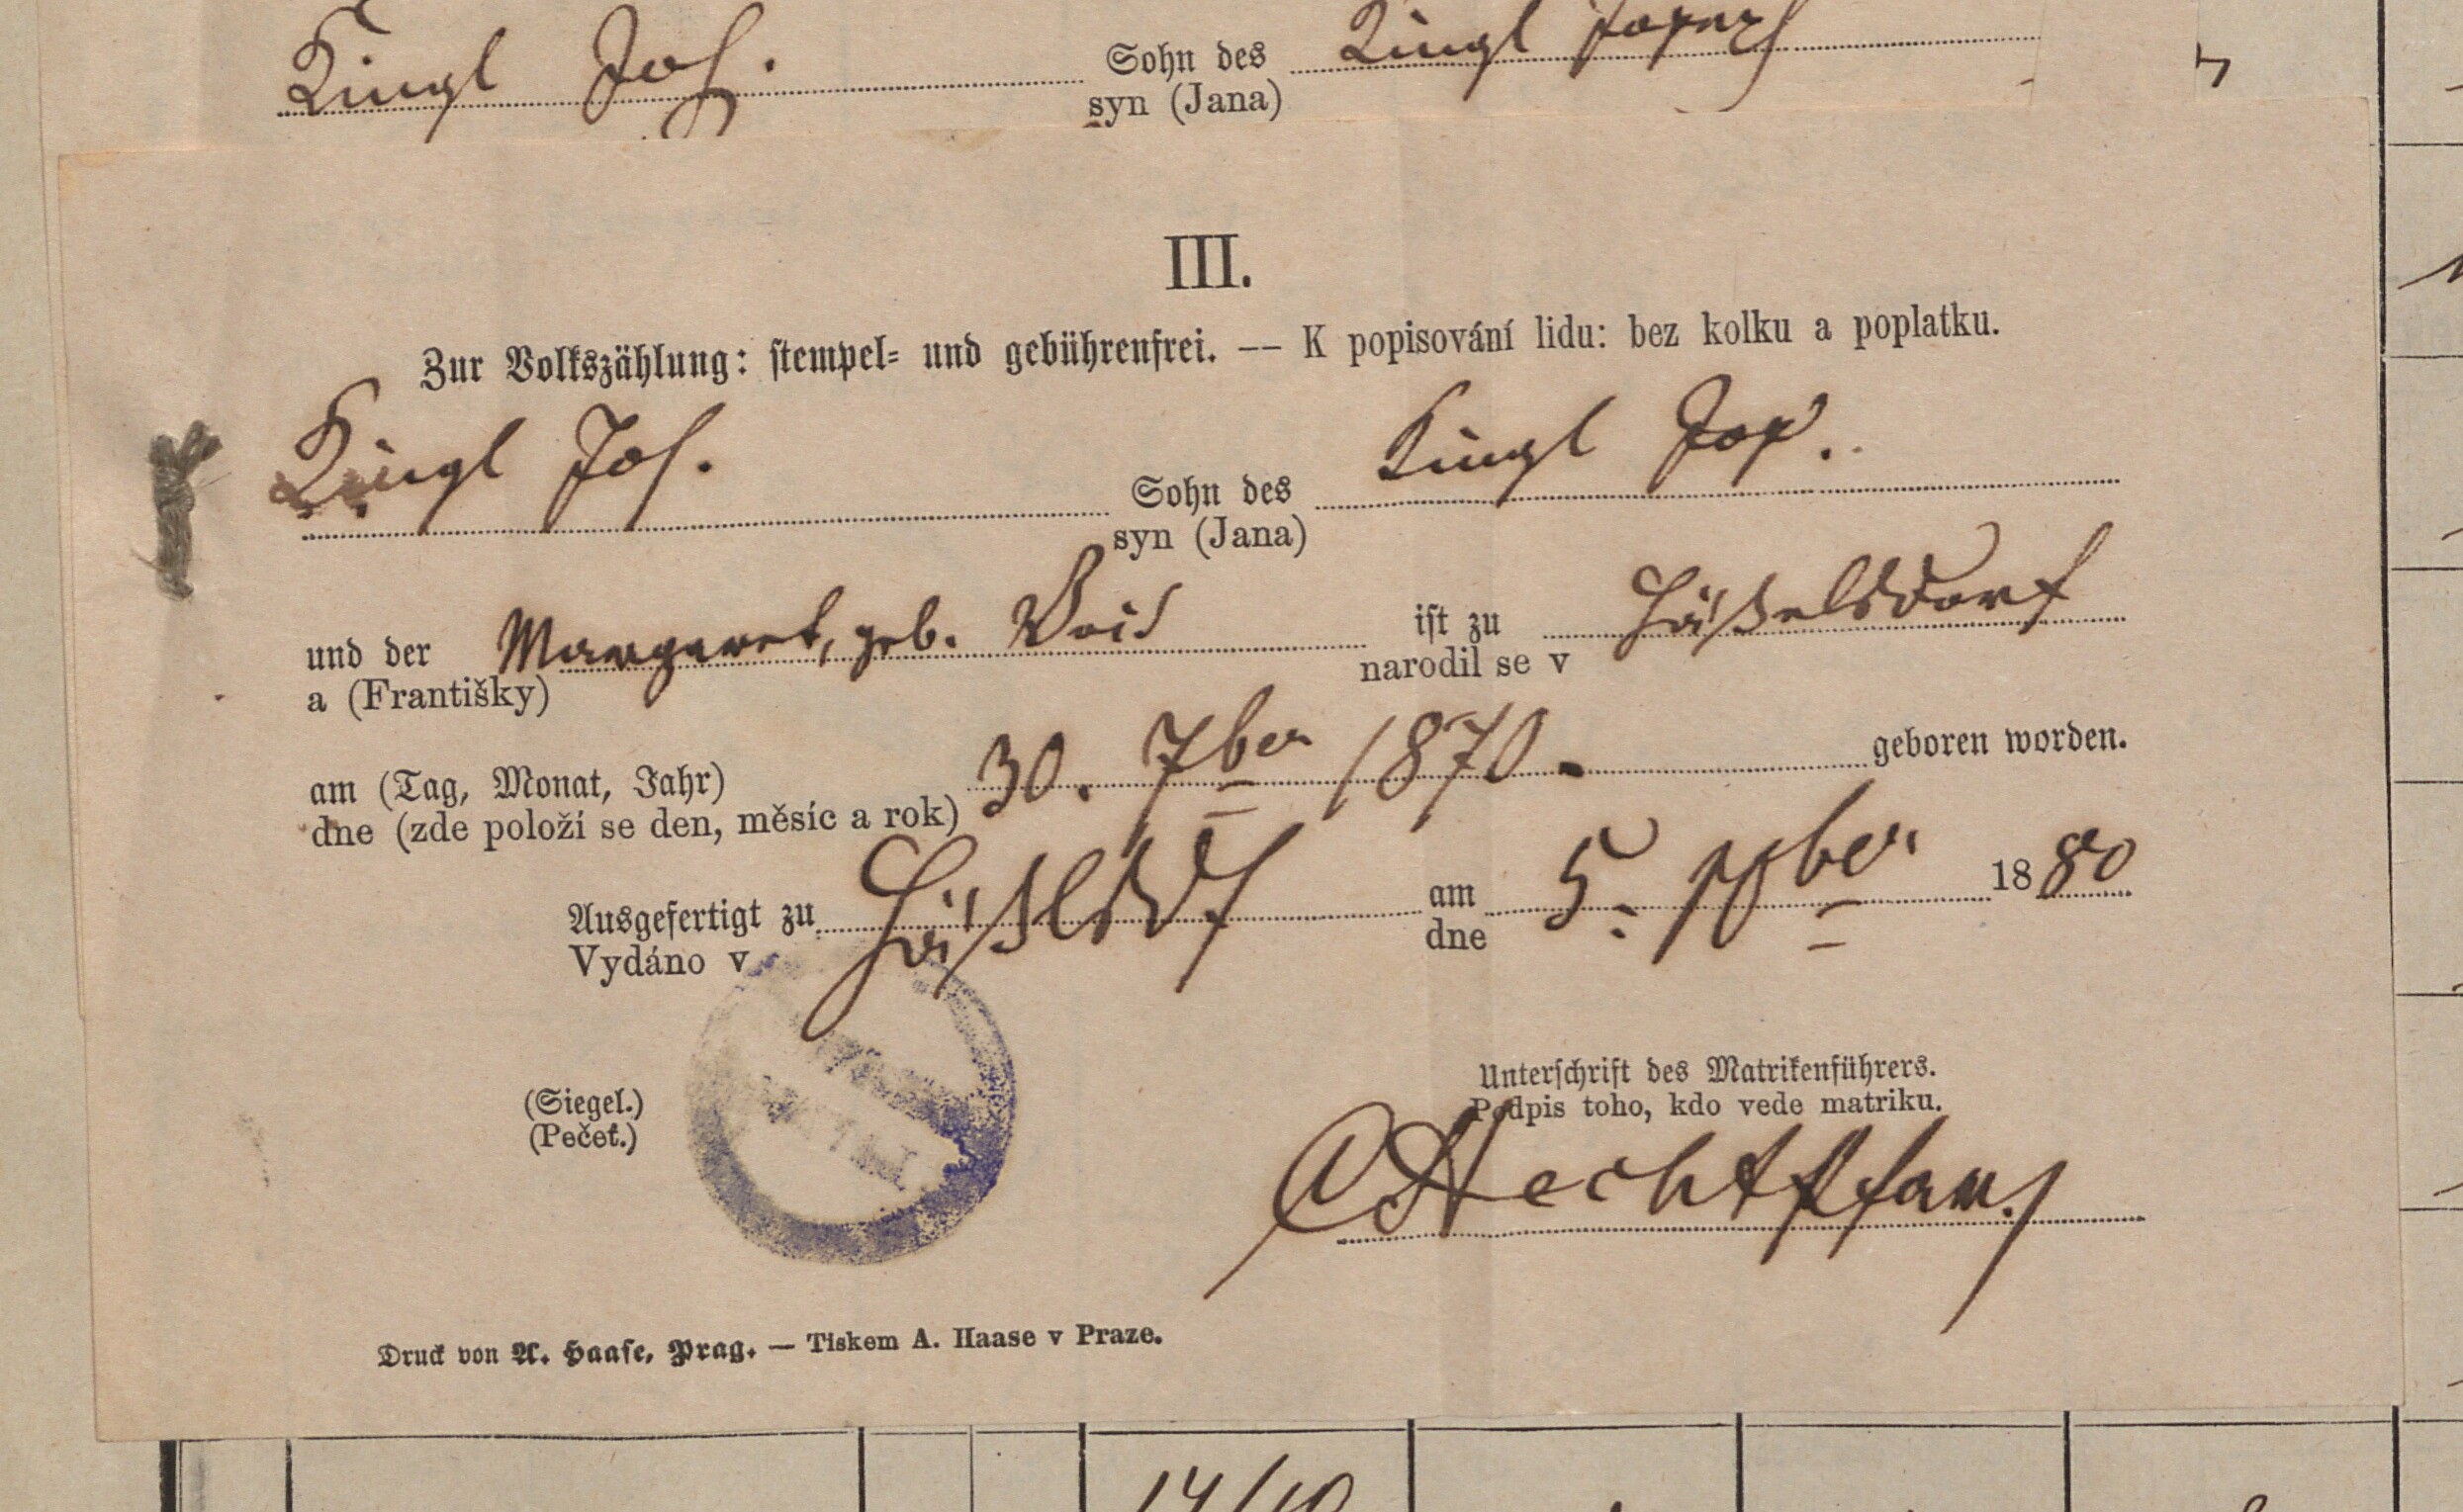 Kingl Joh.
Sohn des Kingl Joseph
syn (Jana)
III.
Zur Volkszählung: stempel- und gebührenfrei. — K popisování lidu: bez kolku a poplatku.
Kingl Jos.
Sohn des Kingl Jos.
syn (Jana)
und der Margaret, geb. ist zu Häßelsdorf
a (Františky) narodil se v
am (Tag, Monat, Jahr) 30. 7ber 1870. geboren worden.
dne (zde položí se den, měsíc a rok)
Ausgefertigt zu Häßlsdf am 5. 10ber 1880
Vydáno v dne
(Siegel.)
(Pečeť.)
Unterschrift des Matrikenführers.
Podpis toho, kdo vede matriku.
Hecht
Druck von A. Haase, Prag. — Tiskem A. Haase v Praze.
14/10